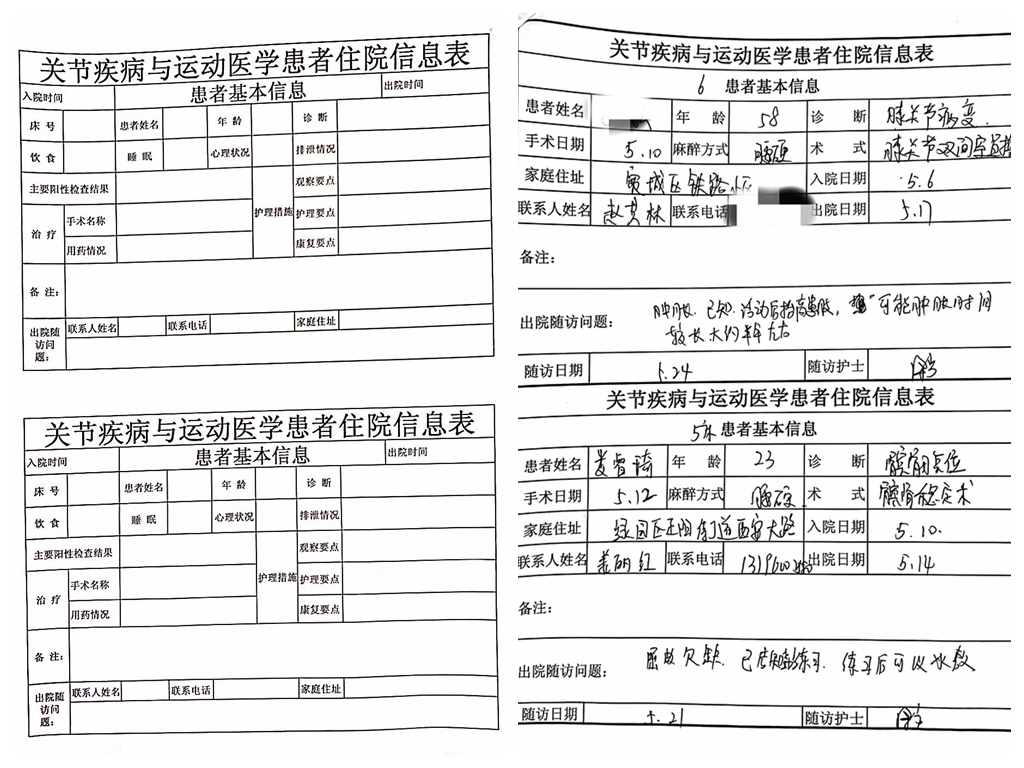 关节疾病与运动医学患者住院信息表
入院时间 患者基本信息 出院时间
床 号 患者姓名 年 龄 诊 断
饮 食 睡 眠 心理状况 排泄情况
主要阳性检查结果 护理措施 观察要点
治 疗 手术名称 护理要点
用药情况 康复要点
备 注:
出院随访问题: 联系人姓名 联系电话 家庭住址
关节疾病与运动医学患者住院信息表
入院时间 患者基本信息 出院时间
床 号 患者姓名 年 龄 诊 断
饮 食 睡 眠 心理状况 排泄情况
主要阳性检查结果 护理措施 观察要点
治 疗 手术名称 护理要点
用药情况 康复要点
备 注:
出院随访问题: 联系人姓名 联系电话 家庭住址
关节疾病与运动医学患者住院信息表
6 患者基本信息
患者姓名 年 龄 58 诊 断 膝关节病变
手术日期 5.10 麻醉方式 腰硬 术 式 膝关节双间室置换
家庭住址 宽城区铁路 入院日期 5.6
联系人姓名 赵其林 联系电话 出院日期 5.17
备注:
出院随访问题: 肿胀. 已知. 活动后抬高患肢, 可能肿胀时间
较长大约半年左右
随访日期 5.24 随访护士
关节疾病与运动医学患者住院信息表
5床 患者基本信息
患者姓名 姜睿琦 年 龄 23 诊 断 髌骨脱位
手术日期 5.12 麻醉方式 腰硬 术 式 髌骨稳定术
家庭住址 绿园区正阳街道西安大路 入院日期 5.10.
联系人姓名 姜丽红 联系电话 1319600 出院日期 5.14
备注:
出院随访问题: 屈曲欠缺. 已告知练习. 练习后可以水敷
随访日期 5.21 随访护士